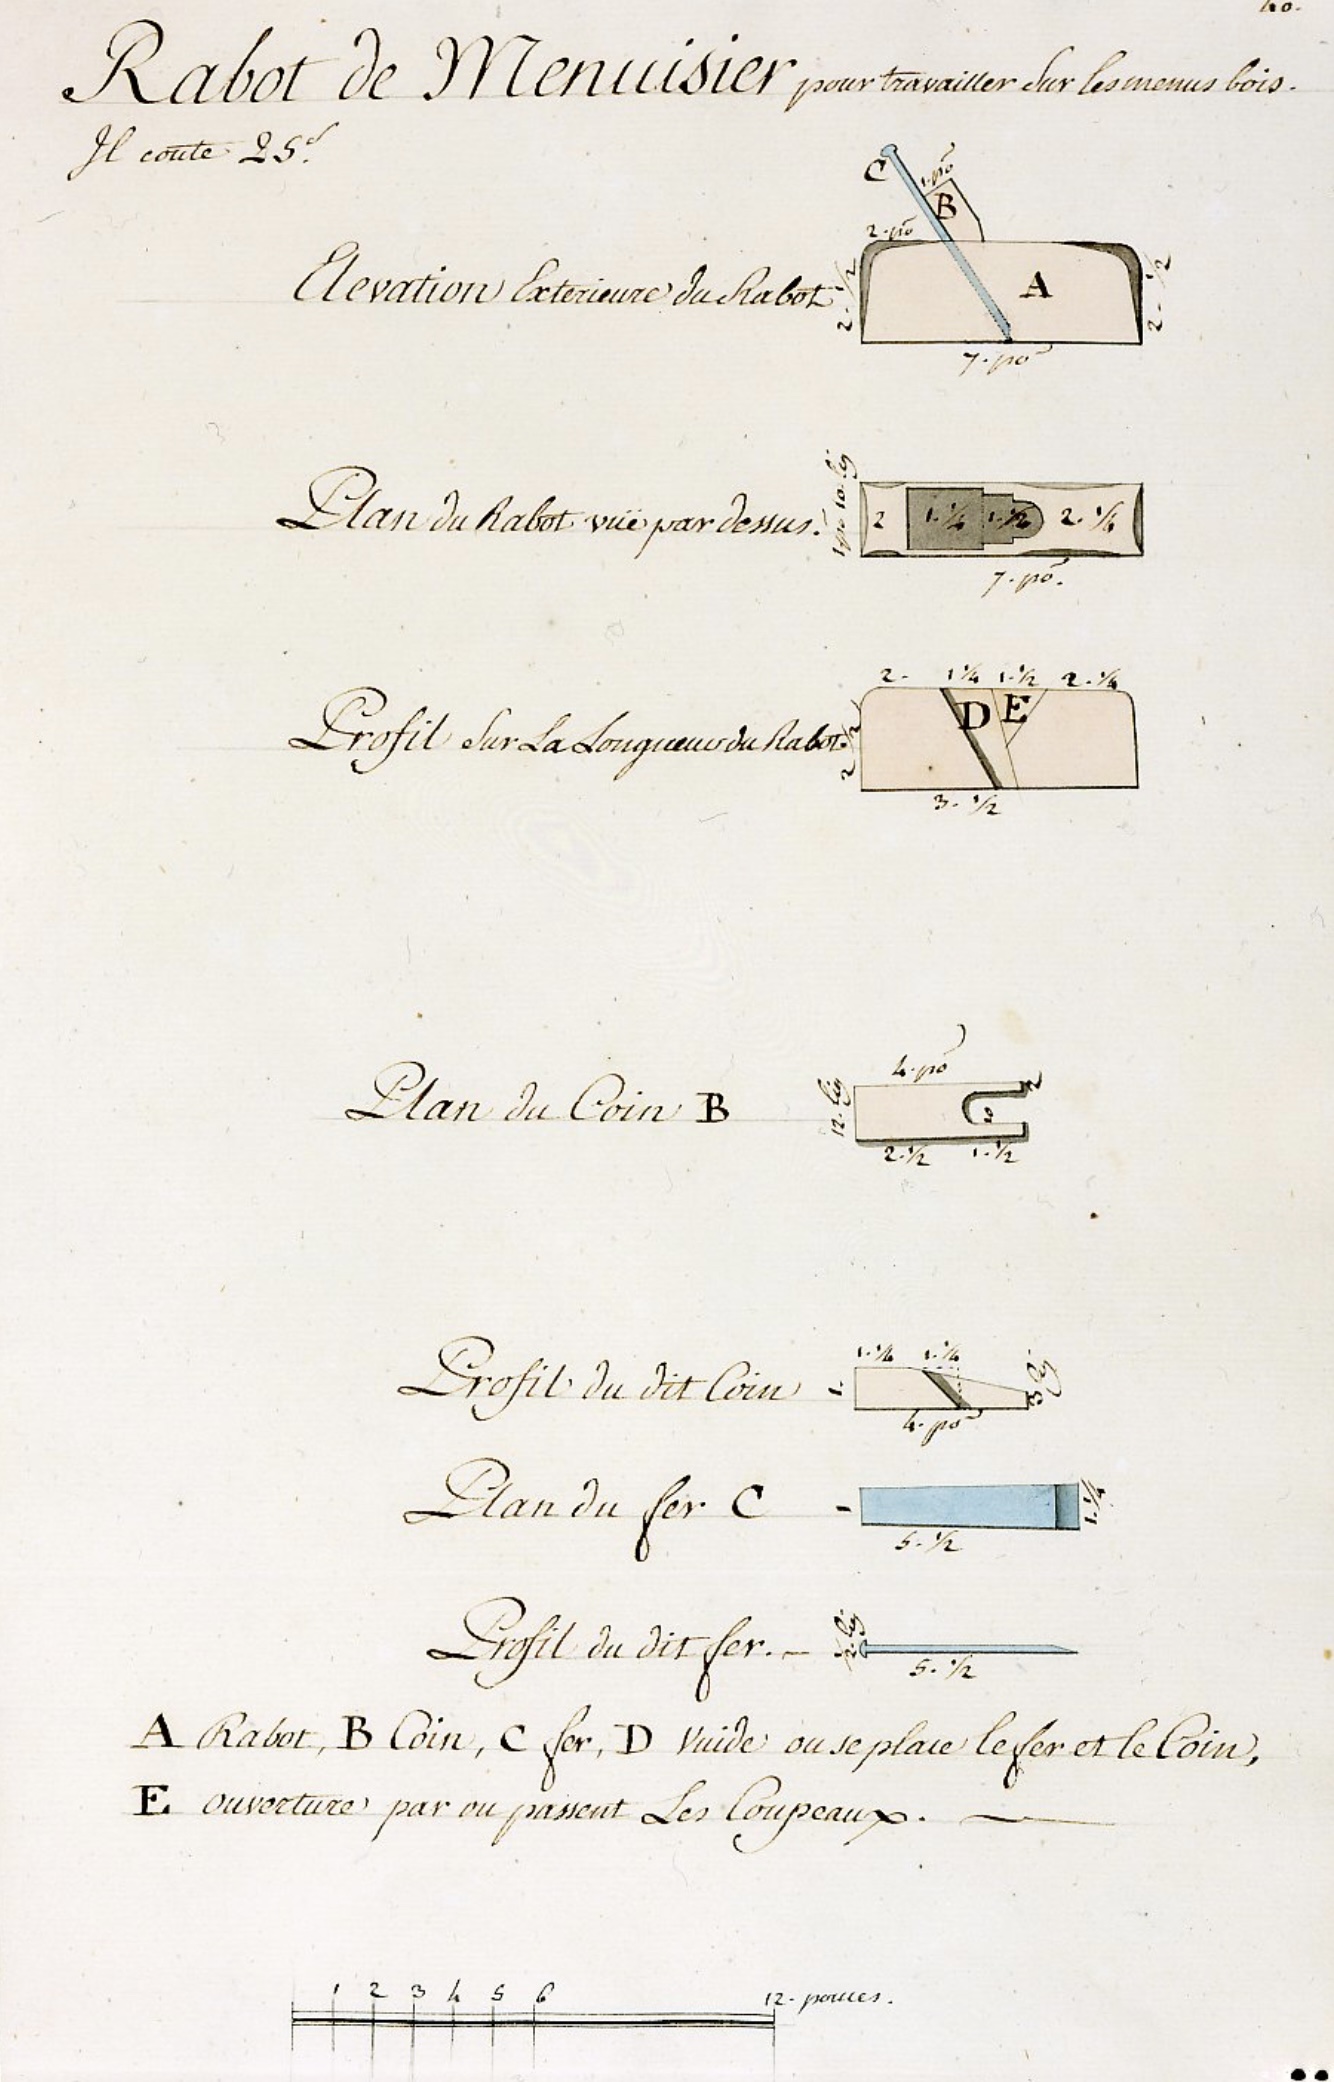 40.
Rabot de Menuisier pour travailler Sur les menus bois.
Il coute 25.s
C
1. po
B
2. po
Elevation Exterieure du Rabot
2. 1/2
A
2. 1/2
7. po
Plan du Rabot vuë par dessus.
1 po 10 lig
2
1. 1/4
1. 1/2
2. 1/4
7. po.
2. 1 1/4 1. 1/2 2. 1/4
Profil Sur La Longueur du Rabot
2 1/2
D E
3. 1/2
4. po
Plan du Coin B
12. lig
2
2. 1/2 1. 1/2
1. 1/4 1. 1/4
Profil du dit Coin
1.
3 lig
4. po
Plan du fer C
1
1. 1/4
5. 1/2
Profil du dit fer.
2. lig
5. 1/2
A Rabot, B Coin, C fer, D Vuide ou se place le fer et le Coin,
E ouverture par ou passent Les Coupeaux.
1 2 3 4 5 6 12. pouces.